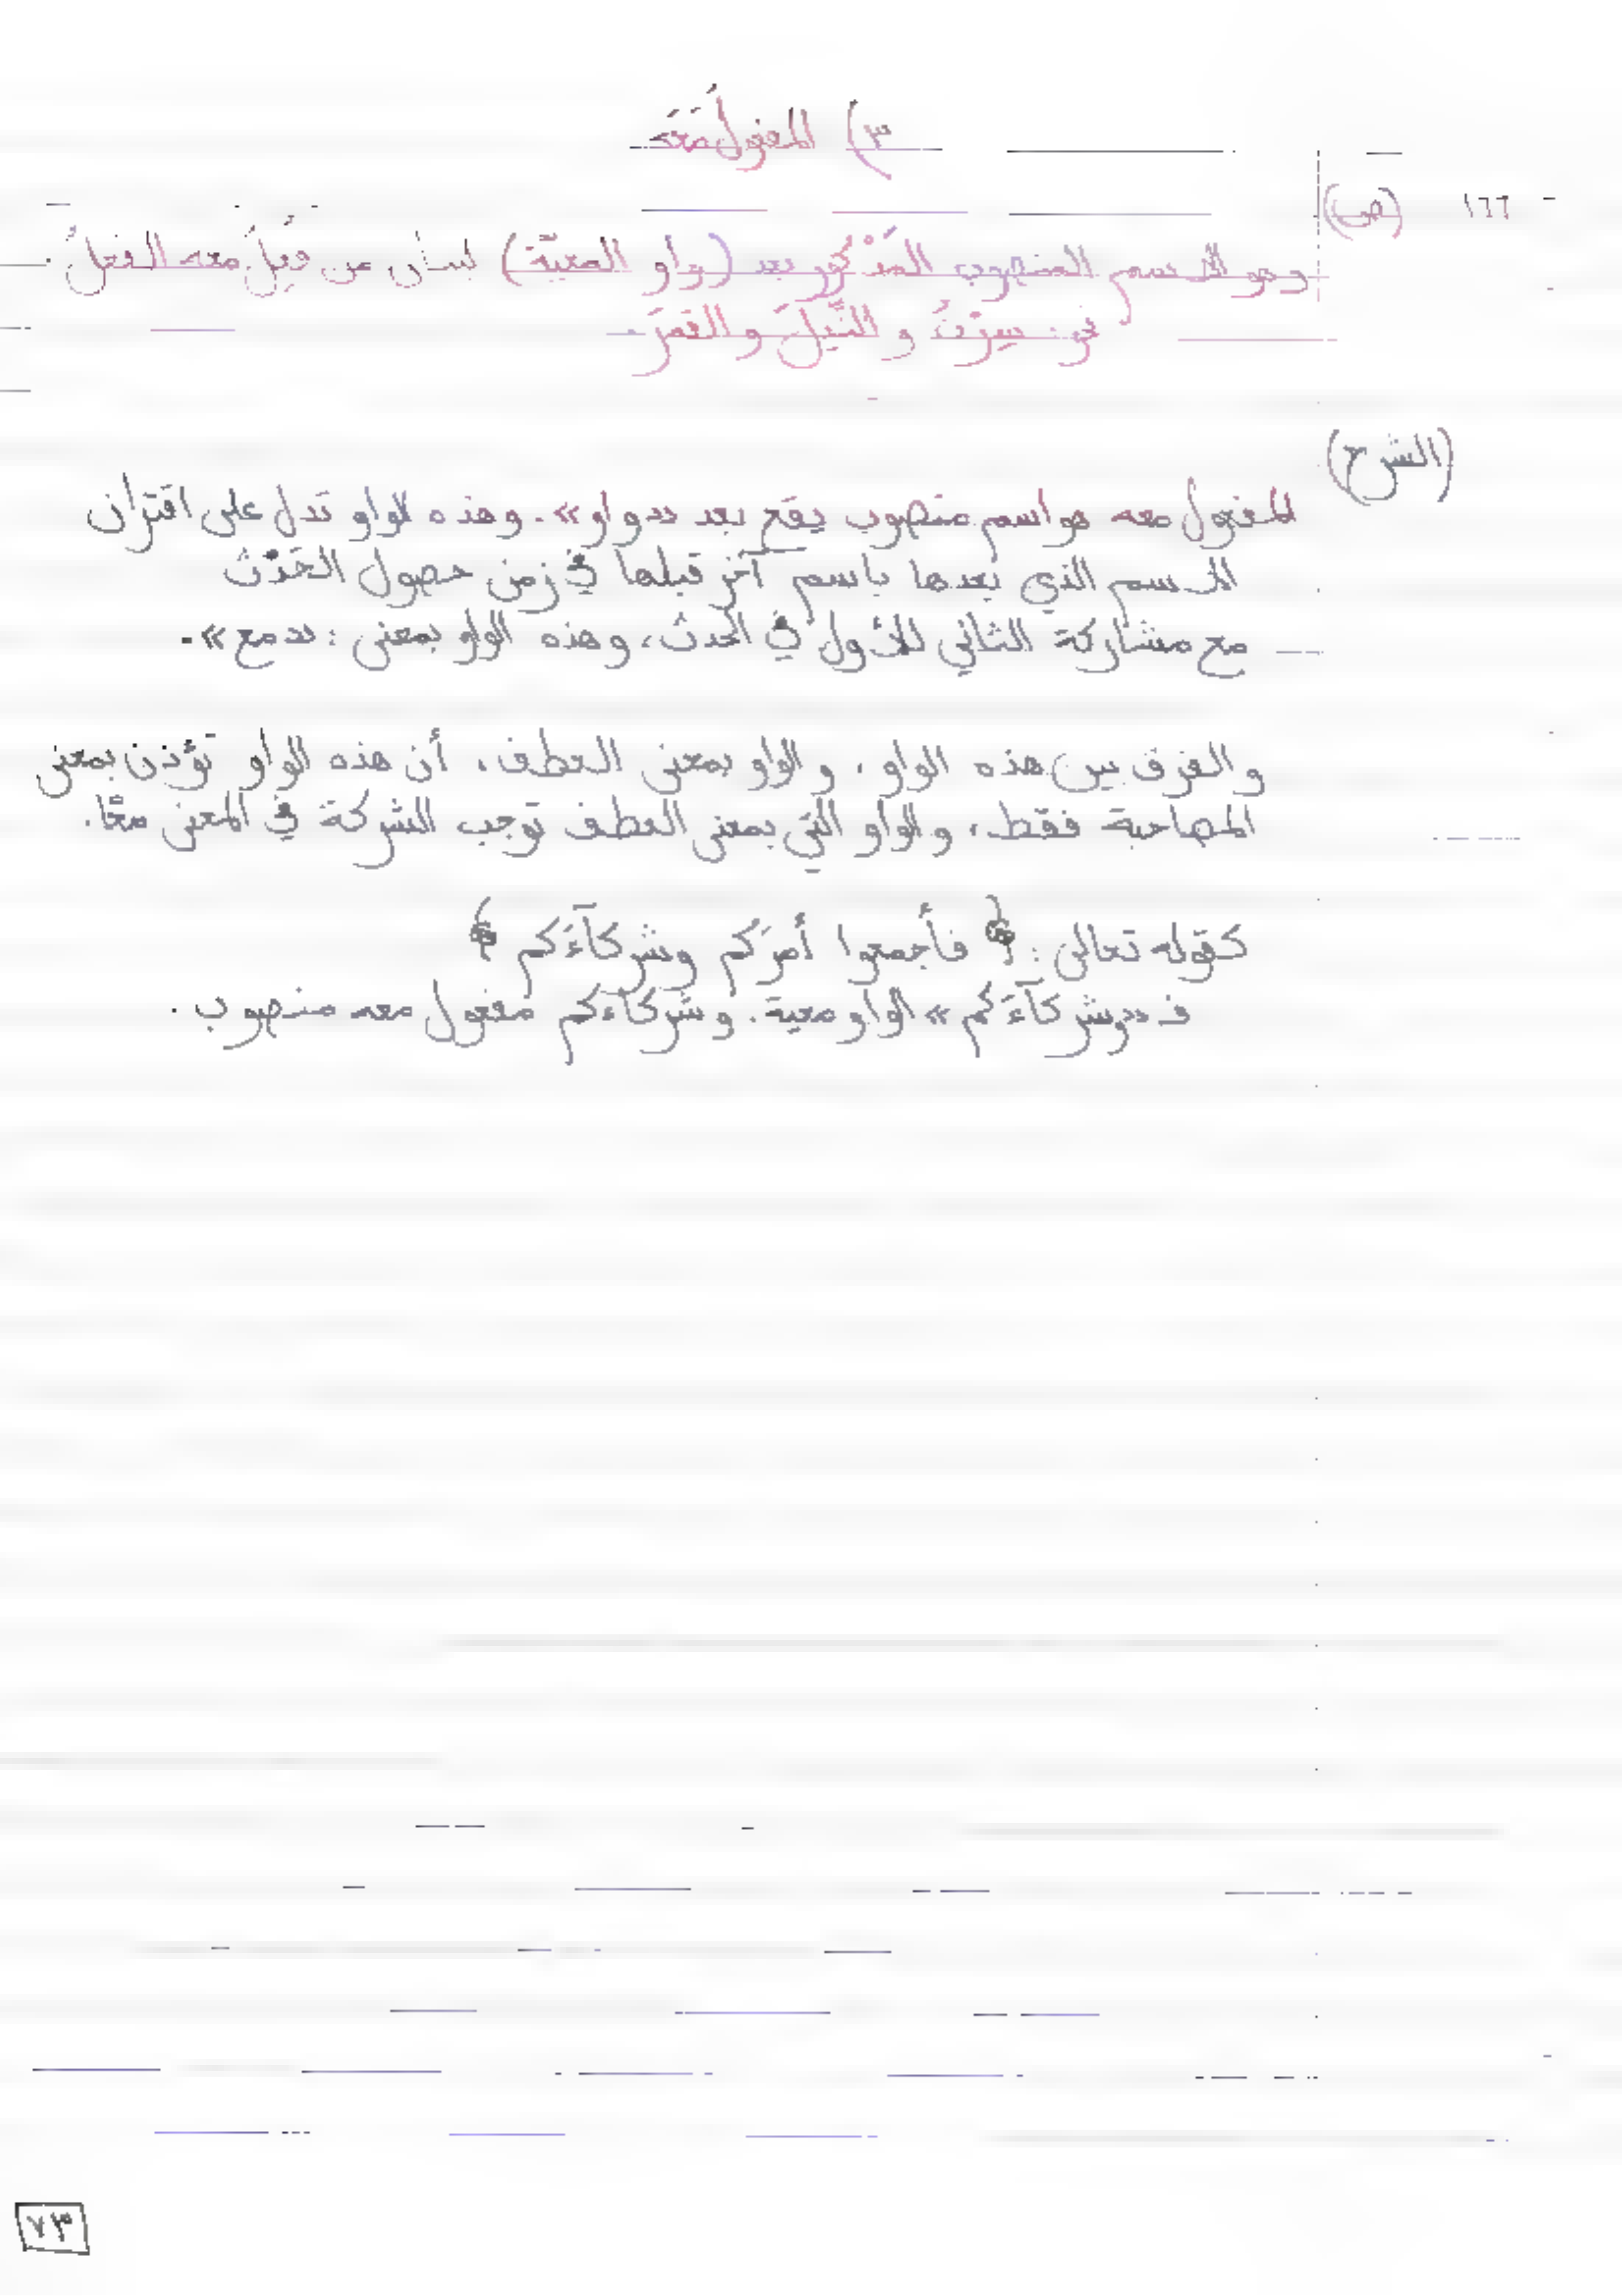 ٣) المفعولُ مَعَه
١٦٦ (ص)
وهو الاسم المنصوب المَذْكور بعد (واو المعيّة) لبيان من فُعِلَ معه الفعلُ.
نحو: سِرْتُ و النِّيلَ و القمرَ.
(الشرح)
المفعول معه هو اسم منصوب يقع بعد «واو». وهذه الواو تدل على اقتران
الاسم الذي بعدها باسم آخر قبلها في زمن حصول الحَدَث
مع مشاركة الثاني للأول في الحدث، وهذه الواو بمعنى: «مع».
والفرق بين هذه الواو، والواو بمعنى العطف، أن هذه الواو تؤذن بمعنى
المصاحبة فقط، والواو التي بمعنى العطف توجب الشركة في المعنى معًا.
كقوله تعالى: ﴿ فأجمعوا أمرَكم وشركآءَكم ﴾
فـ «وشركآءَكم» الواو معية. وشركاءكم مفعول معه منصوب.
٧٣